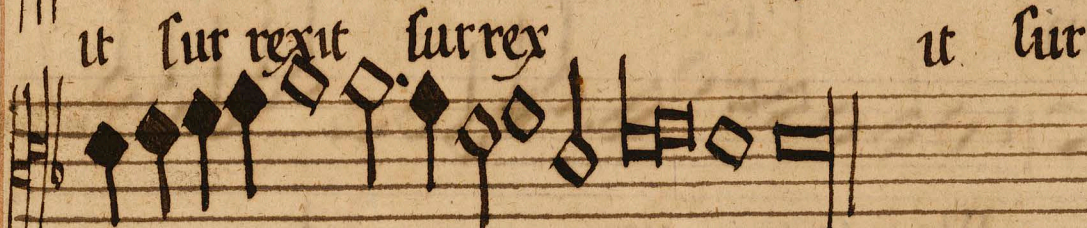 it sur rexit surrex it sur